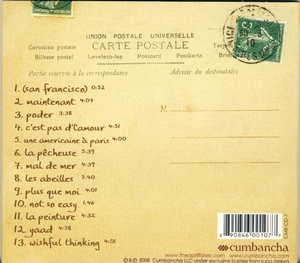 UNION POSTALE UNIVERSELLE
CARTE POSTALE
Cartolina postale Weltpostverein Postkarte
Bilhete postal Levelezo-lap Postcard Postkarts Briefkaart
Partie réservée à la correspondance
Adresse du destinataire
1. (san francisco) 0:52
2. maintenant 4:07
3. poder 3:38
4. c'est pas d'l'amour 4:31
5. une americaine à paris 4:00
6. la pêcheuse 5:39
7. mal de mer 4:39
8. les abeilles 5:40
9. plus que moi 4:01
10. not so easy 1:44
11. la peinture 2:32
12. yaad 5:38
13. wishful thinking 4:01
CMB-CD-7
6 90846 00107 7
cumbancha
℗ & © 2008 Cumbancha LLC under exclusive license from rupa marya
www.theaprilfishes.com www.cumbancha.com